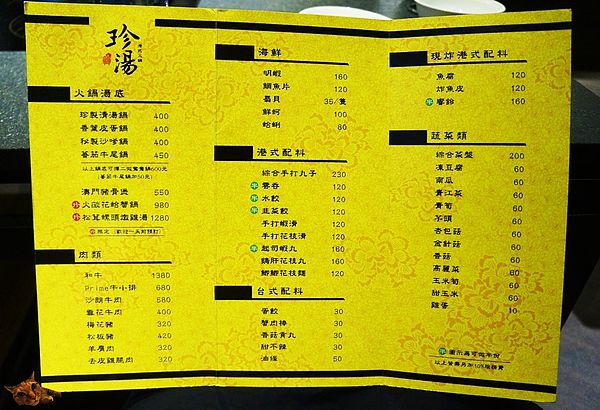 珍湯
火鍋湯底
珍製清湯鍋 400
香菜皮蛋鍋 400
秘製沙嗲鍋 400
蕃茄牛尾鍋 450
以上鍋底可擇二做鴛鴦鍋600元
(蕃茄牛尾鍋加50元)
澳門豬骨煲 550
火焰花蛤蟹鍋 980
松茸螺頭燉雞湯 1280
肉類
和牛 1380
Prime牛小排 680
沙朗牛肉 580
雪花牛肉 400
梅花豬 320
松板豬 420
羊肩肉 320
去皮雞腿肉 320
海鮮
明蝦 160
鯛魚片 120
扇貝 35/隻
鮮蚵 100
蛤蜊 80
港式配料
綜合手打丸子 230
半 雲吞 120
半 水餃 120
半 韮菜餃 120
手打蝦滑 120
手打花枝滑 120
半 起司蝦丸 120
鵝肝花枝丸 160
鮑鮑花枝麵 120
台式配料
蛋餃 30
蟹肉棒 30
香菇貢丸 30
甜不辣 30
油條 50
現炸港式配料
魚腐 120
炸魚皮 120
半 響鈴 160
蔬菜類
綜合菜盤 200
凍豆腐 60
南瓜 60
青江菜 60
青筍 60
芋頭 60
杏包菇 60
金針菇 60
香菇 60
高麗菜 60
玉米筍 60
甜玉米 60
雞蛋 10
半 圖示為可做半份
以上皆需另加10%服務費